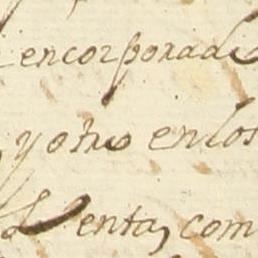 encorporad
y otro en los
enta, com